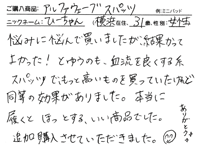 ご購入商品: アルファウェーブスパッツ 例:ミニパッド
ニックネーム: ひーちゃん (横浜在住、31歳、性別:女性)
悩みに悩んで買いましたが結果かって
よかった!というのも、血流を良くする系
スパッツでもっと高いものを買っていたけど
同等の効果がありました。本当に
履くとほっとする、いい商品でした。
追加購入させていただきました。
ありがとう